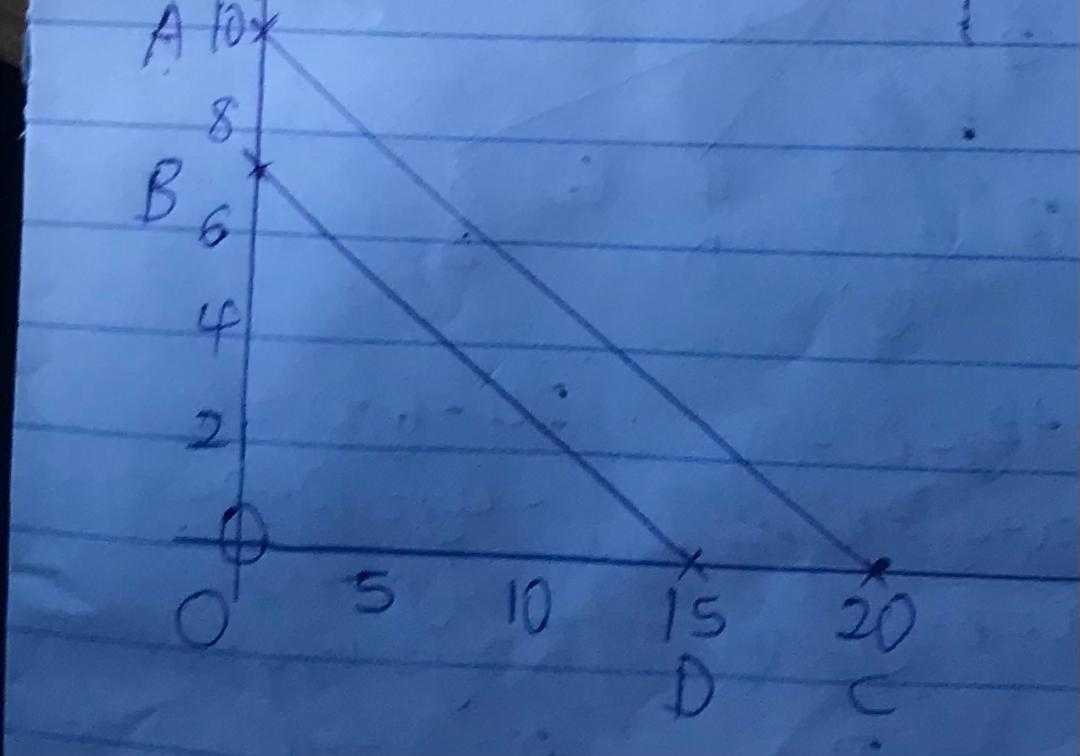 A 10
8
B
6
4
2
O 5 10 15 20
D C